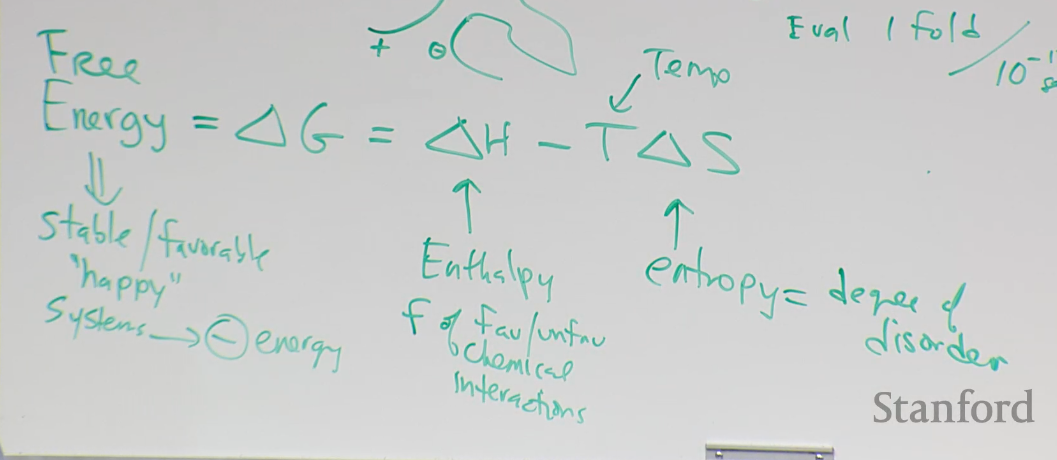 Eval 1 fold / 10⁻¹
+ ⊖
Free
Energy = ΔG = ΔH - TΔS
Temp
stable/favorable
"happy"
systems → ⊖ energy
Enthalpy
f of fav/unfav
chemical
interactions
entropy = degree of
disorder
Stanford